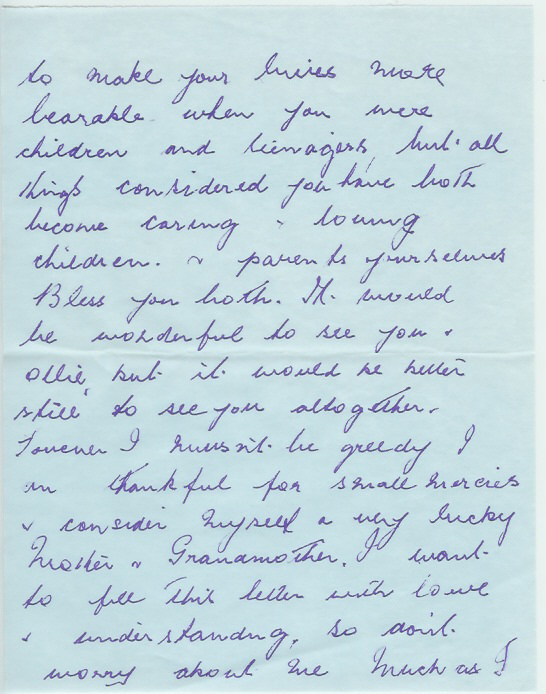 to make your lives more
bearable when you were
children and teenagers, but all
things considered you have both
become caring & loving
children. & parents yourselves
Bless you both. It would
be wonderful to see you &
Ollie, but it would be better
still to see you altogether.
I mussn't be greedy I
am thankful for small mercies
& consider myself a very lucky
Mother & Grandmother. I want
to fill this letter with love
& understanding, so don't
worry about me Much as I